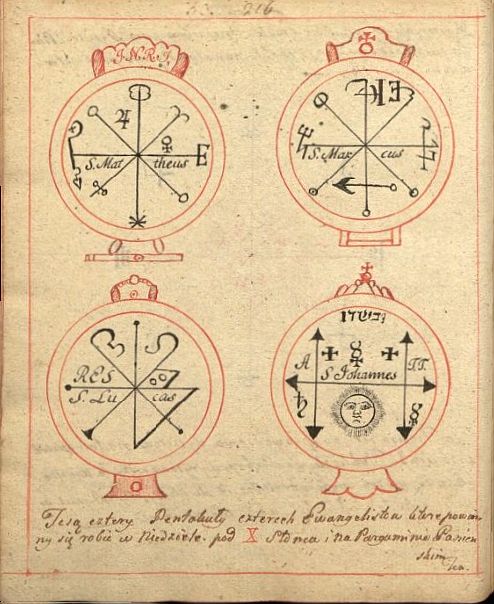 216
I.N.R.I.
E
S. Mat theus
E
I S. Mar cus
RES
S. Lu cas
A
S Johannes
Te są cztery Pentakuły czterech Ewangelistów które powin
ny się robić w Niedzielę pod X Słońca i na Pargaminie Panień
skim